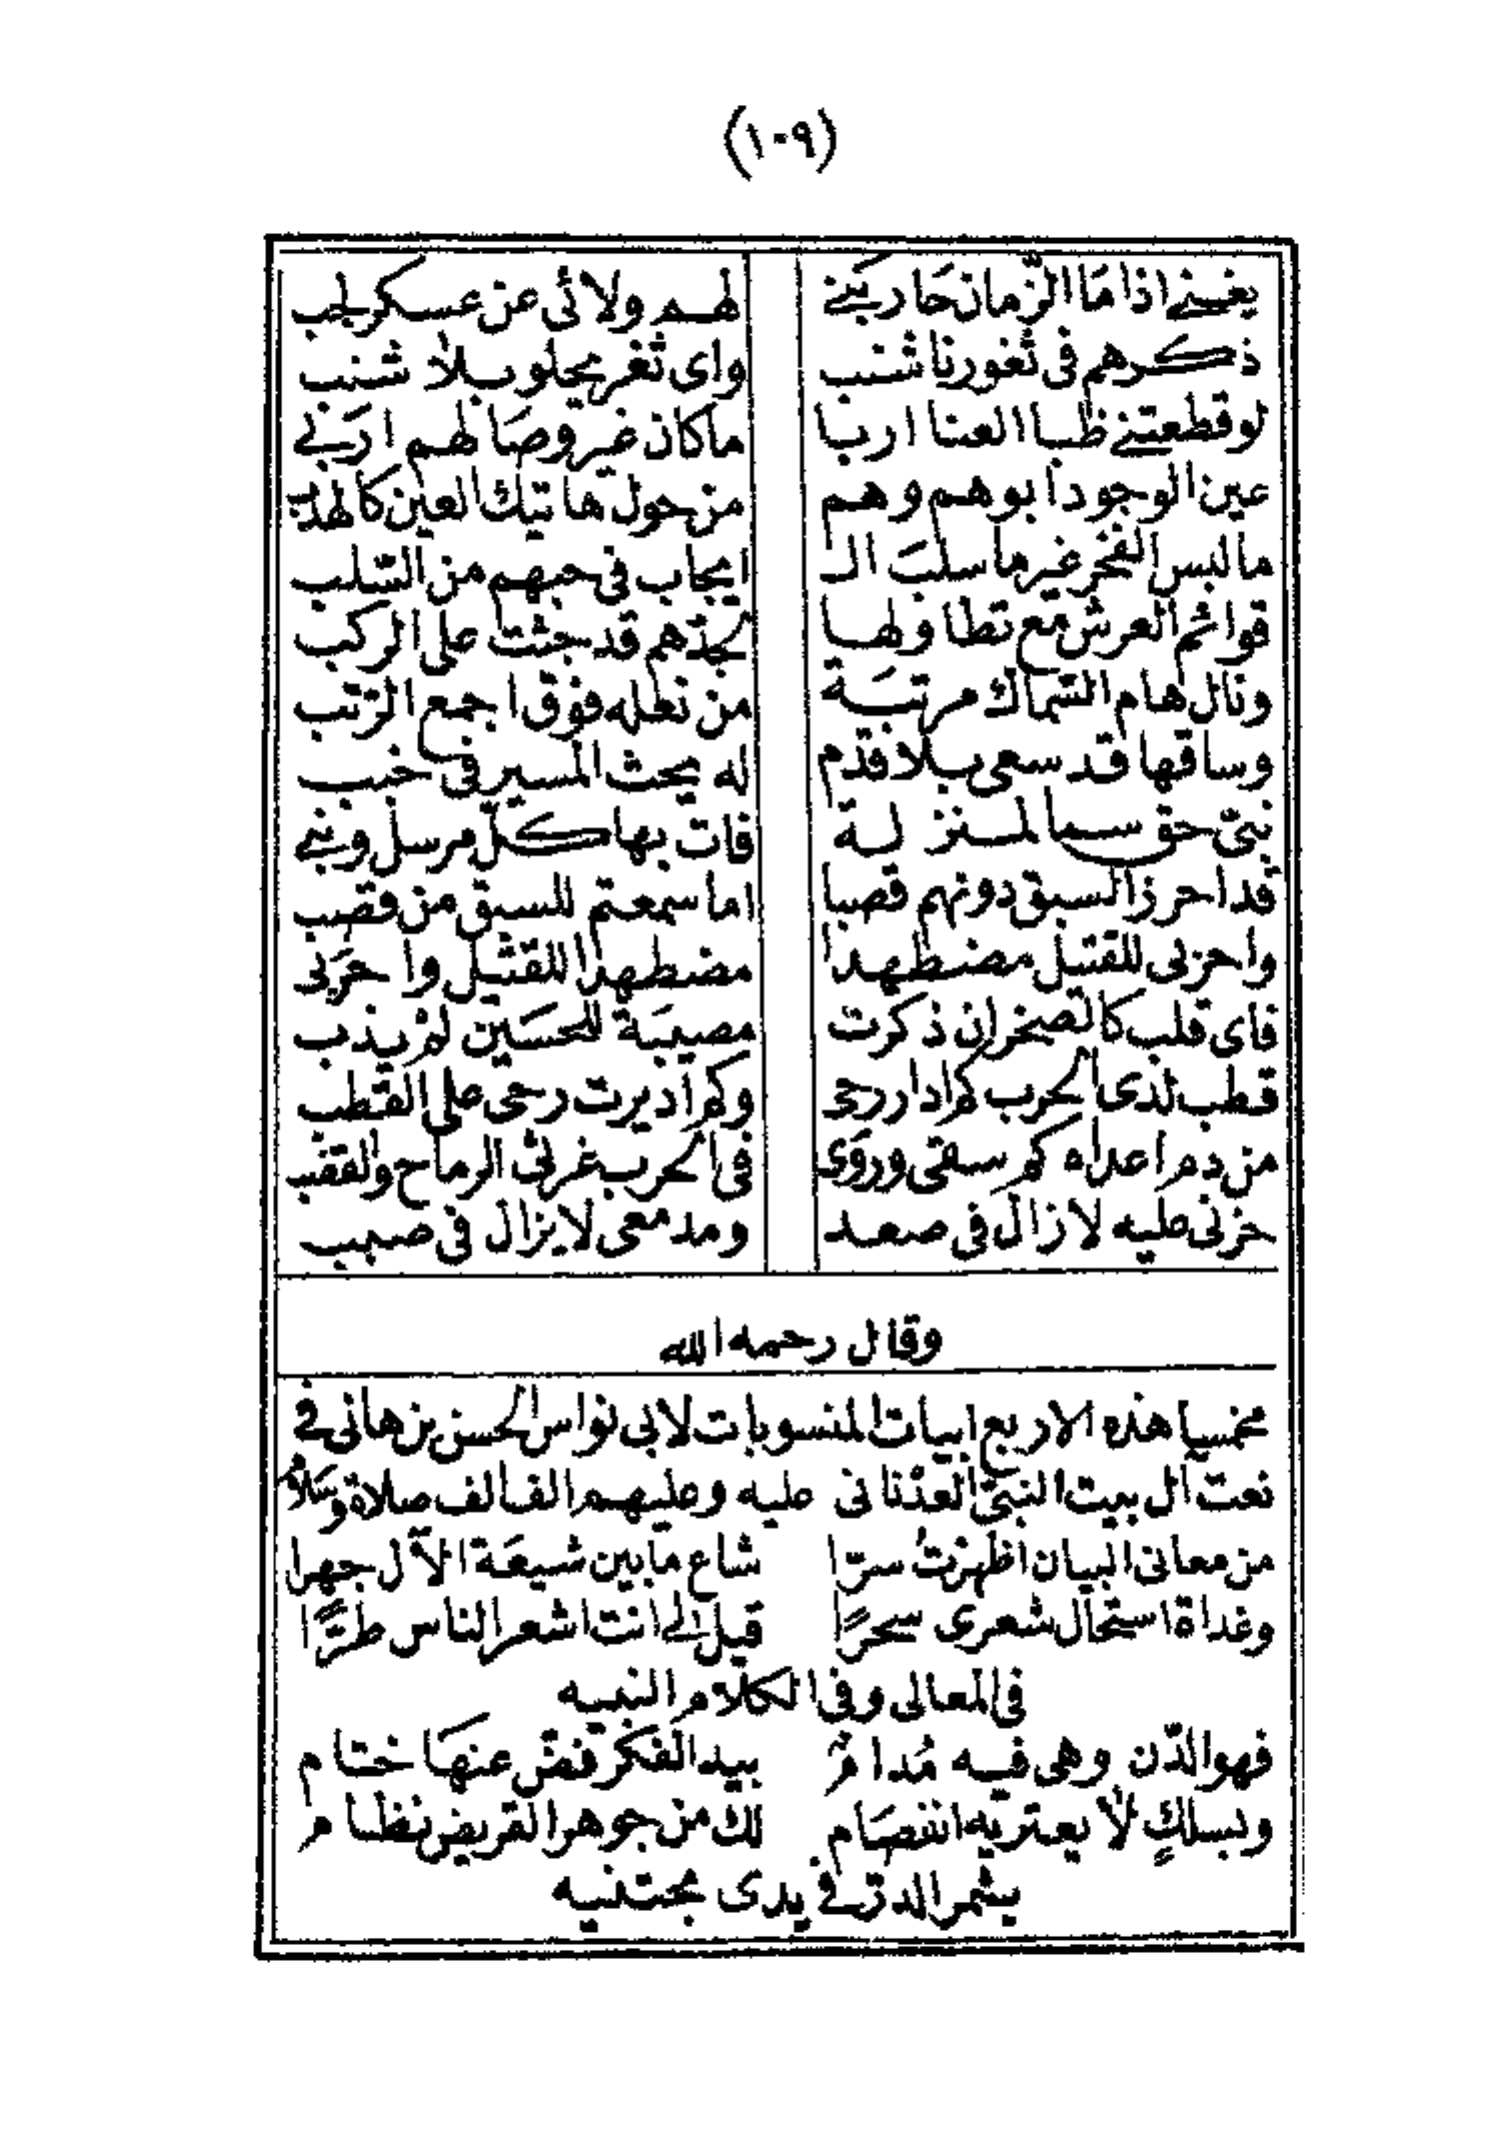 (١٠٩)
يغنينى اذا مَا الزّمان حَاربَنى لهم ولائى عن عسكر لجب
ذكرهم فى ثغورنا شنب واى ثغر يحلو بلا شنب
لو قطعتنى ظبا العنا اربا ما كان غير وصَالهم اربى
عين الوجود ابوهم وهم من حول هاتيك العين كالهدب
ما لبس الفخر غير ما سلبَ الـ ايجاب فى حبهم من السّلب
قوائم العرش مع تطاولها لجدّهم قد جثت على الركب
ونال هام السّماك مرتبَة من نعله فوق اجمع الرّتب
وساقها قد سعى بلا قدَم له يحث المسير فى خبب
نبىّ حق سما لمنزلة فات بها كلّ مرسل ونبى
قد احرز السبق دونهم قصبا اما سمعتم للسبق من قصب
واحزنى للقتيل مضطهدا مضطهدا للقتيل واحزنى
فاى قلب كالصخر ان ذكرت مصيبَة للحسَين لم يذب
قطب لدى الحرب كم ادار رحى وكم اديرت رحى على القطب
من دم اعداه كم سقى وروَى فى الحرب غرثى الرماح والقضب
حزنى عليه لا زال فى صعد ومدمعى لا يزال فى صبب
وقال رحمه الله
مخمسا هذه الاربع ابيات المنسوبات لابى نواس الحسن بن هانى فى
نعت آل بيت النبىّ العدْنانى عليه وعليهم الف الف صلاة وسَلام
من معانى البيان اظهرْتُ سرّا شاع ما بين شيعَة الآل جهرا
وغداة استحال شعرى سحرًا قيل لى انت اشعر الناس طرًّا
فى المعالى وفى الكلام النبيه
فهو الدّن وهى فيه مُدامٌ بيد الفكر فضّ عنهَا ختام
وبسلكٍ لا يعتريه انفصَام لك من جوهر القريض نظام
يثمر الدرّ فى يدى مجتنيه